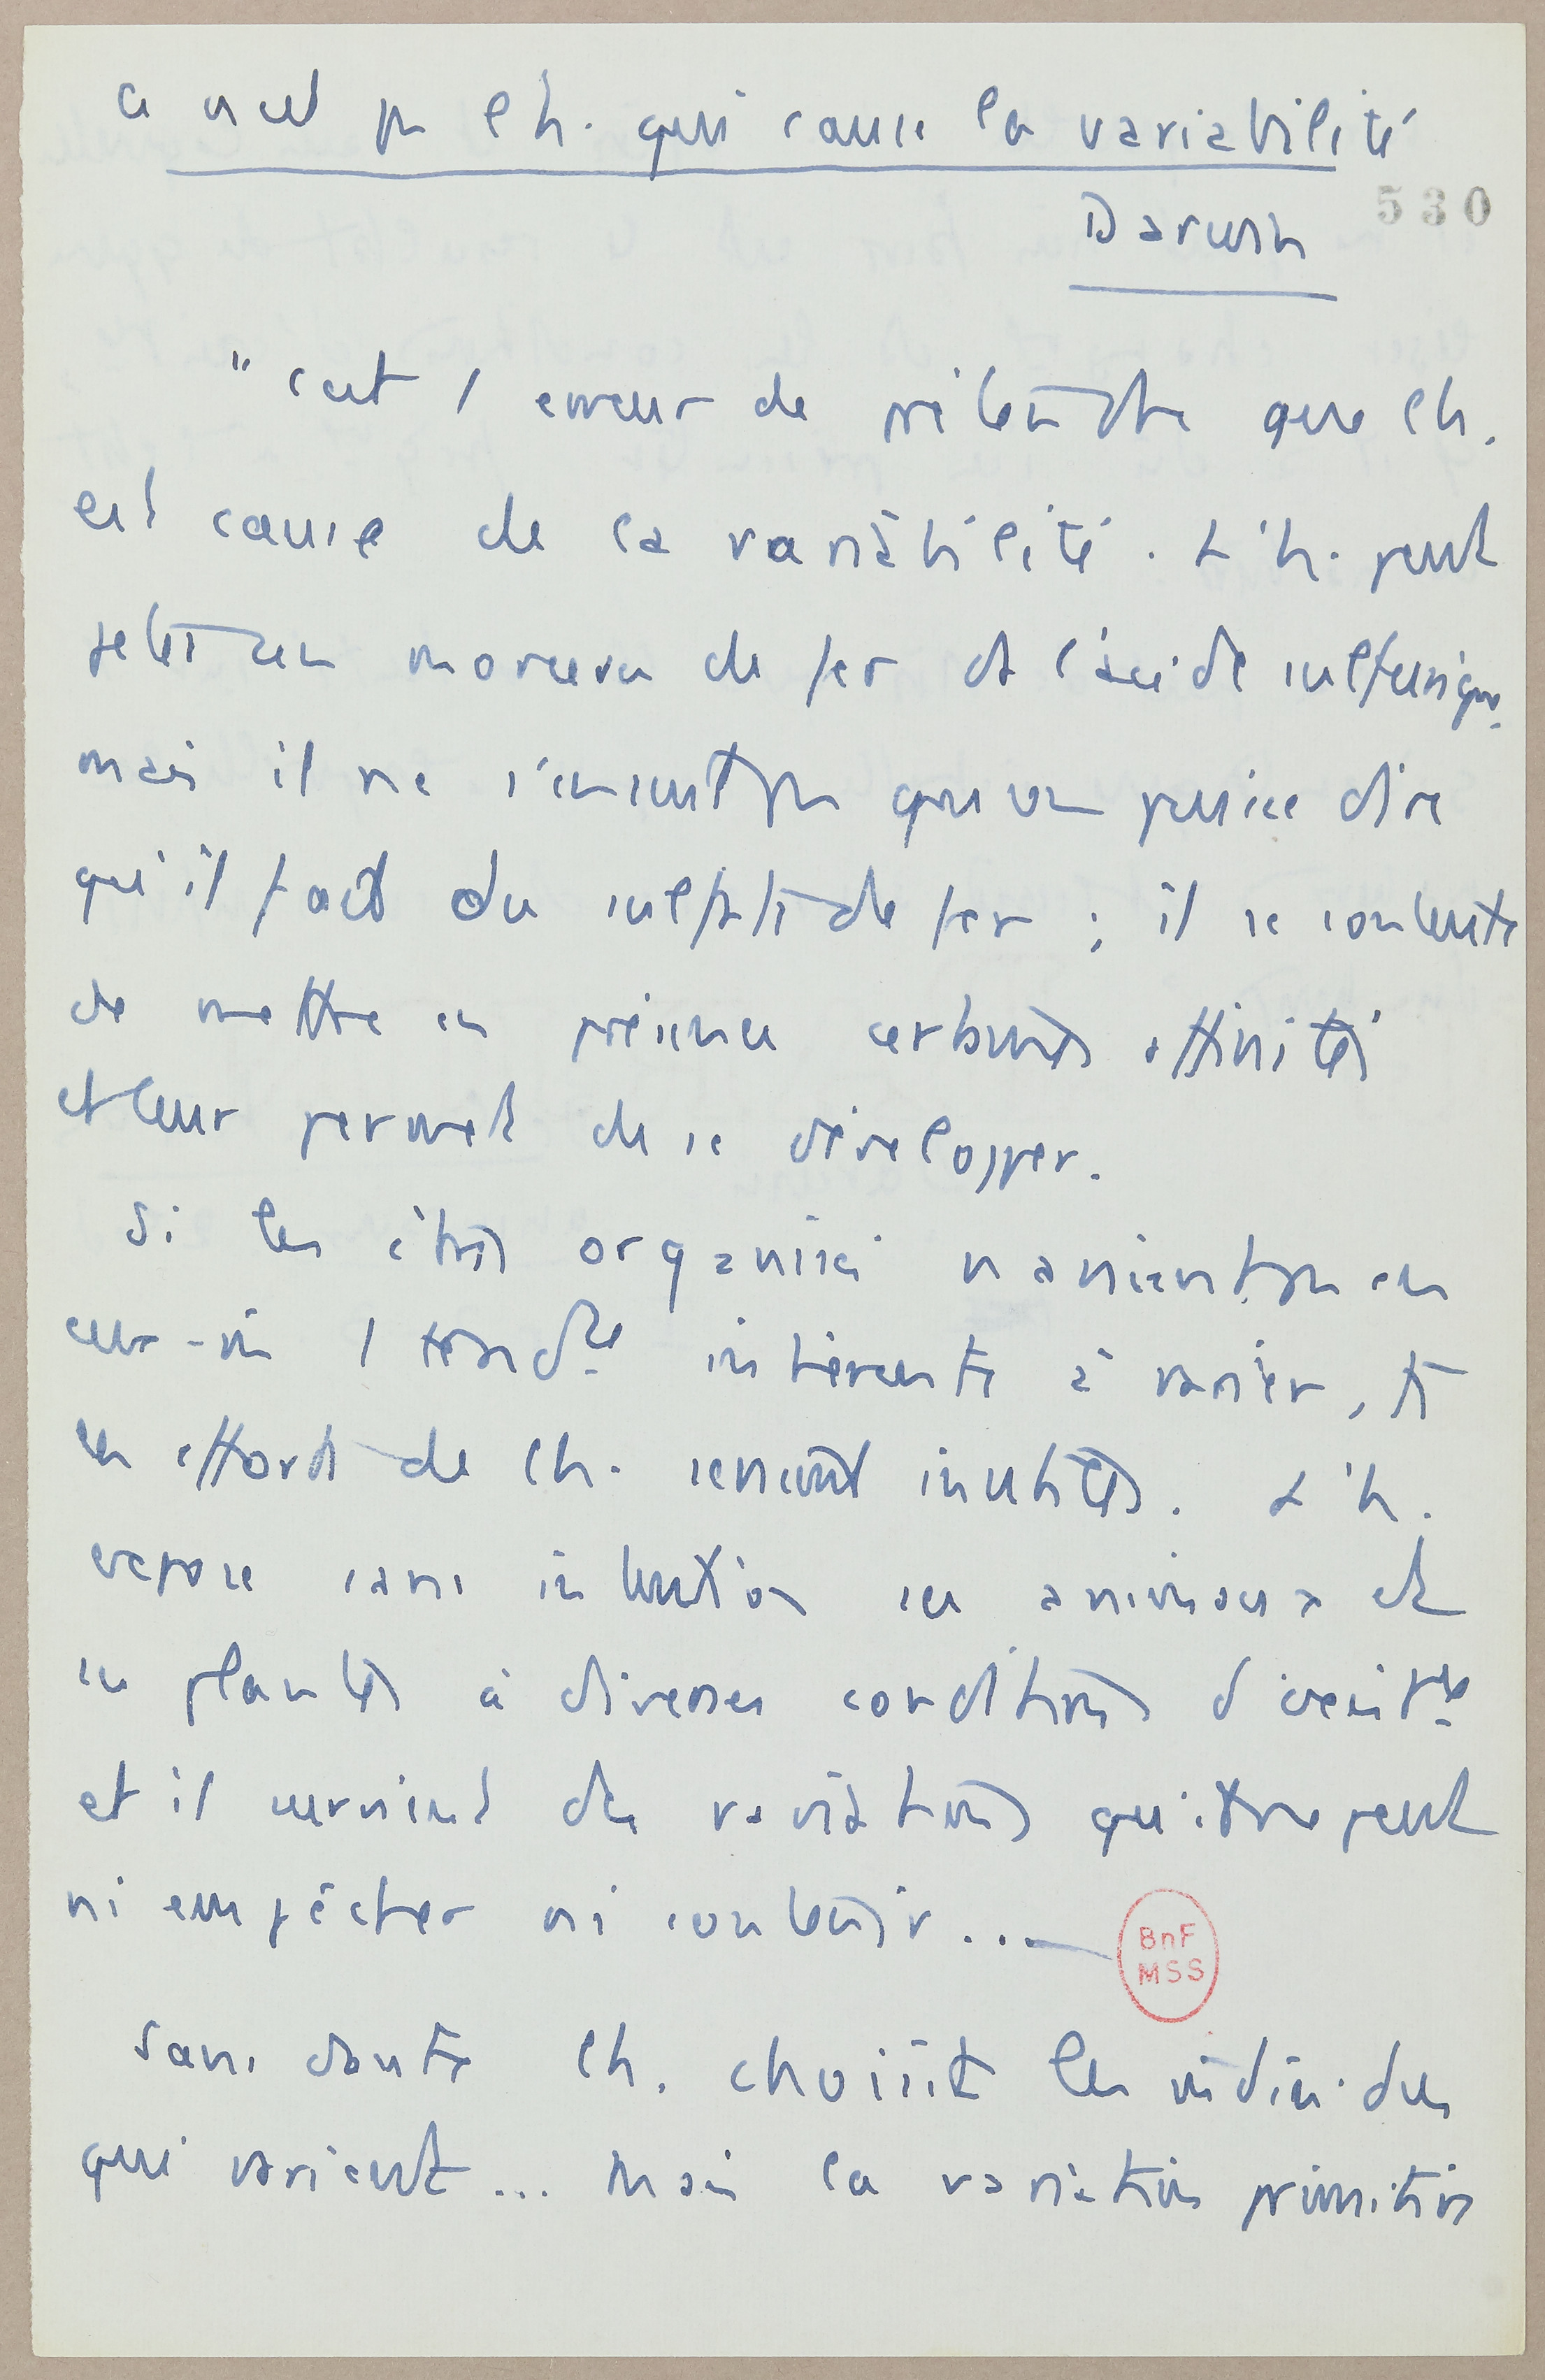 Ce n'est pas l'h. qui cause la variabilité
530
Darwin
"C'est 1 erreur de prétendre que l'h.
est cause de la variabilité. L'h. peut
jeter un morceau de fer ds l'acide sulfurique
mais il ne s'ensuit pas qu'on puisse dire
qu'il fait du sulfate de fer ; il se contente
de mettre en présence certaines affinités
et leur permet de se développer.
Si les êtres organisés n'avaient pas en
eux-mêmes 1 tendce inhérente à varier, ts
les efforts de l'h. seraient inutiles. L'h.
expose sans intention les animaux et
les plantes à diverses conditions d'existce
et il survient des variations qu'il ne peut
ni empêcher ni contenir...
BnF
MSS
Sans doute l'h. choisit les individus
qui varient... Mais la variation primitive